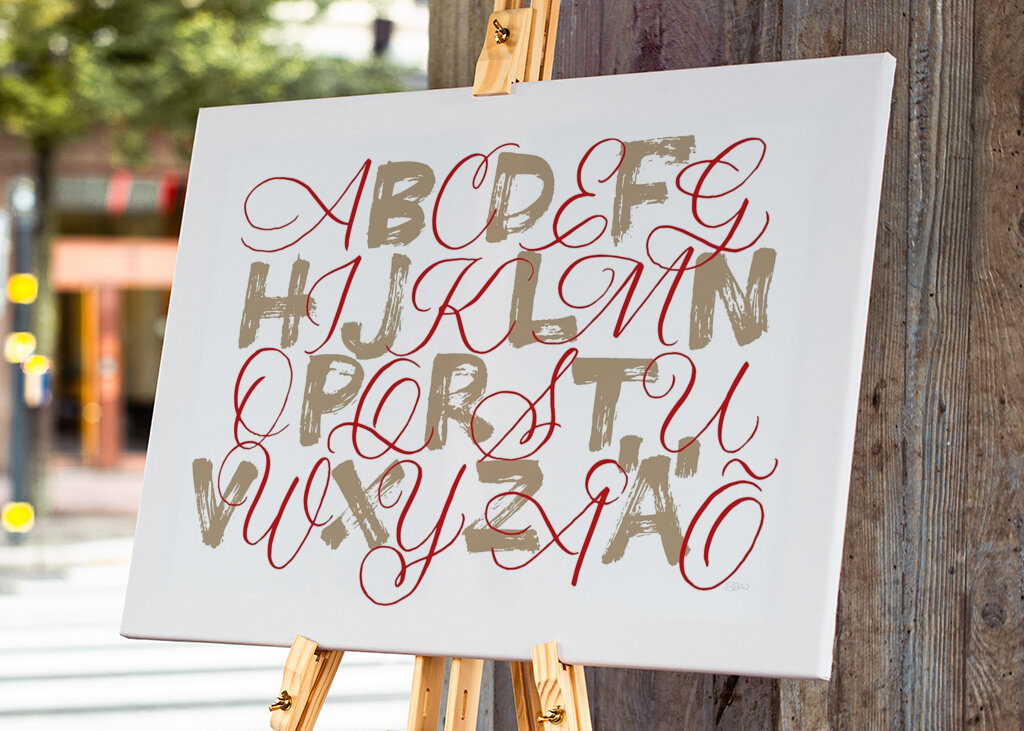 A B C D E F G
H I J K L M N
O P Q R S T U
V W X Y Z Å Ä Õ